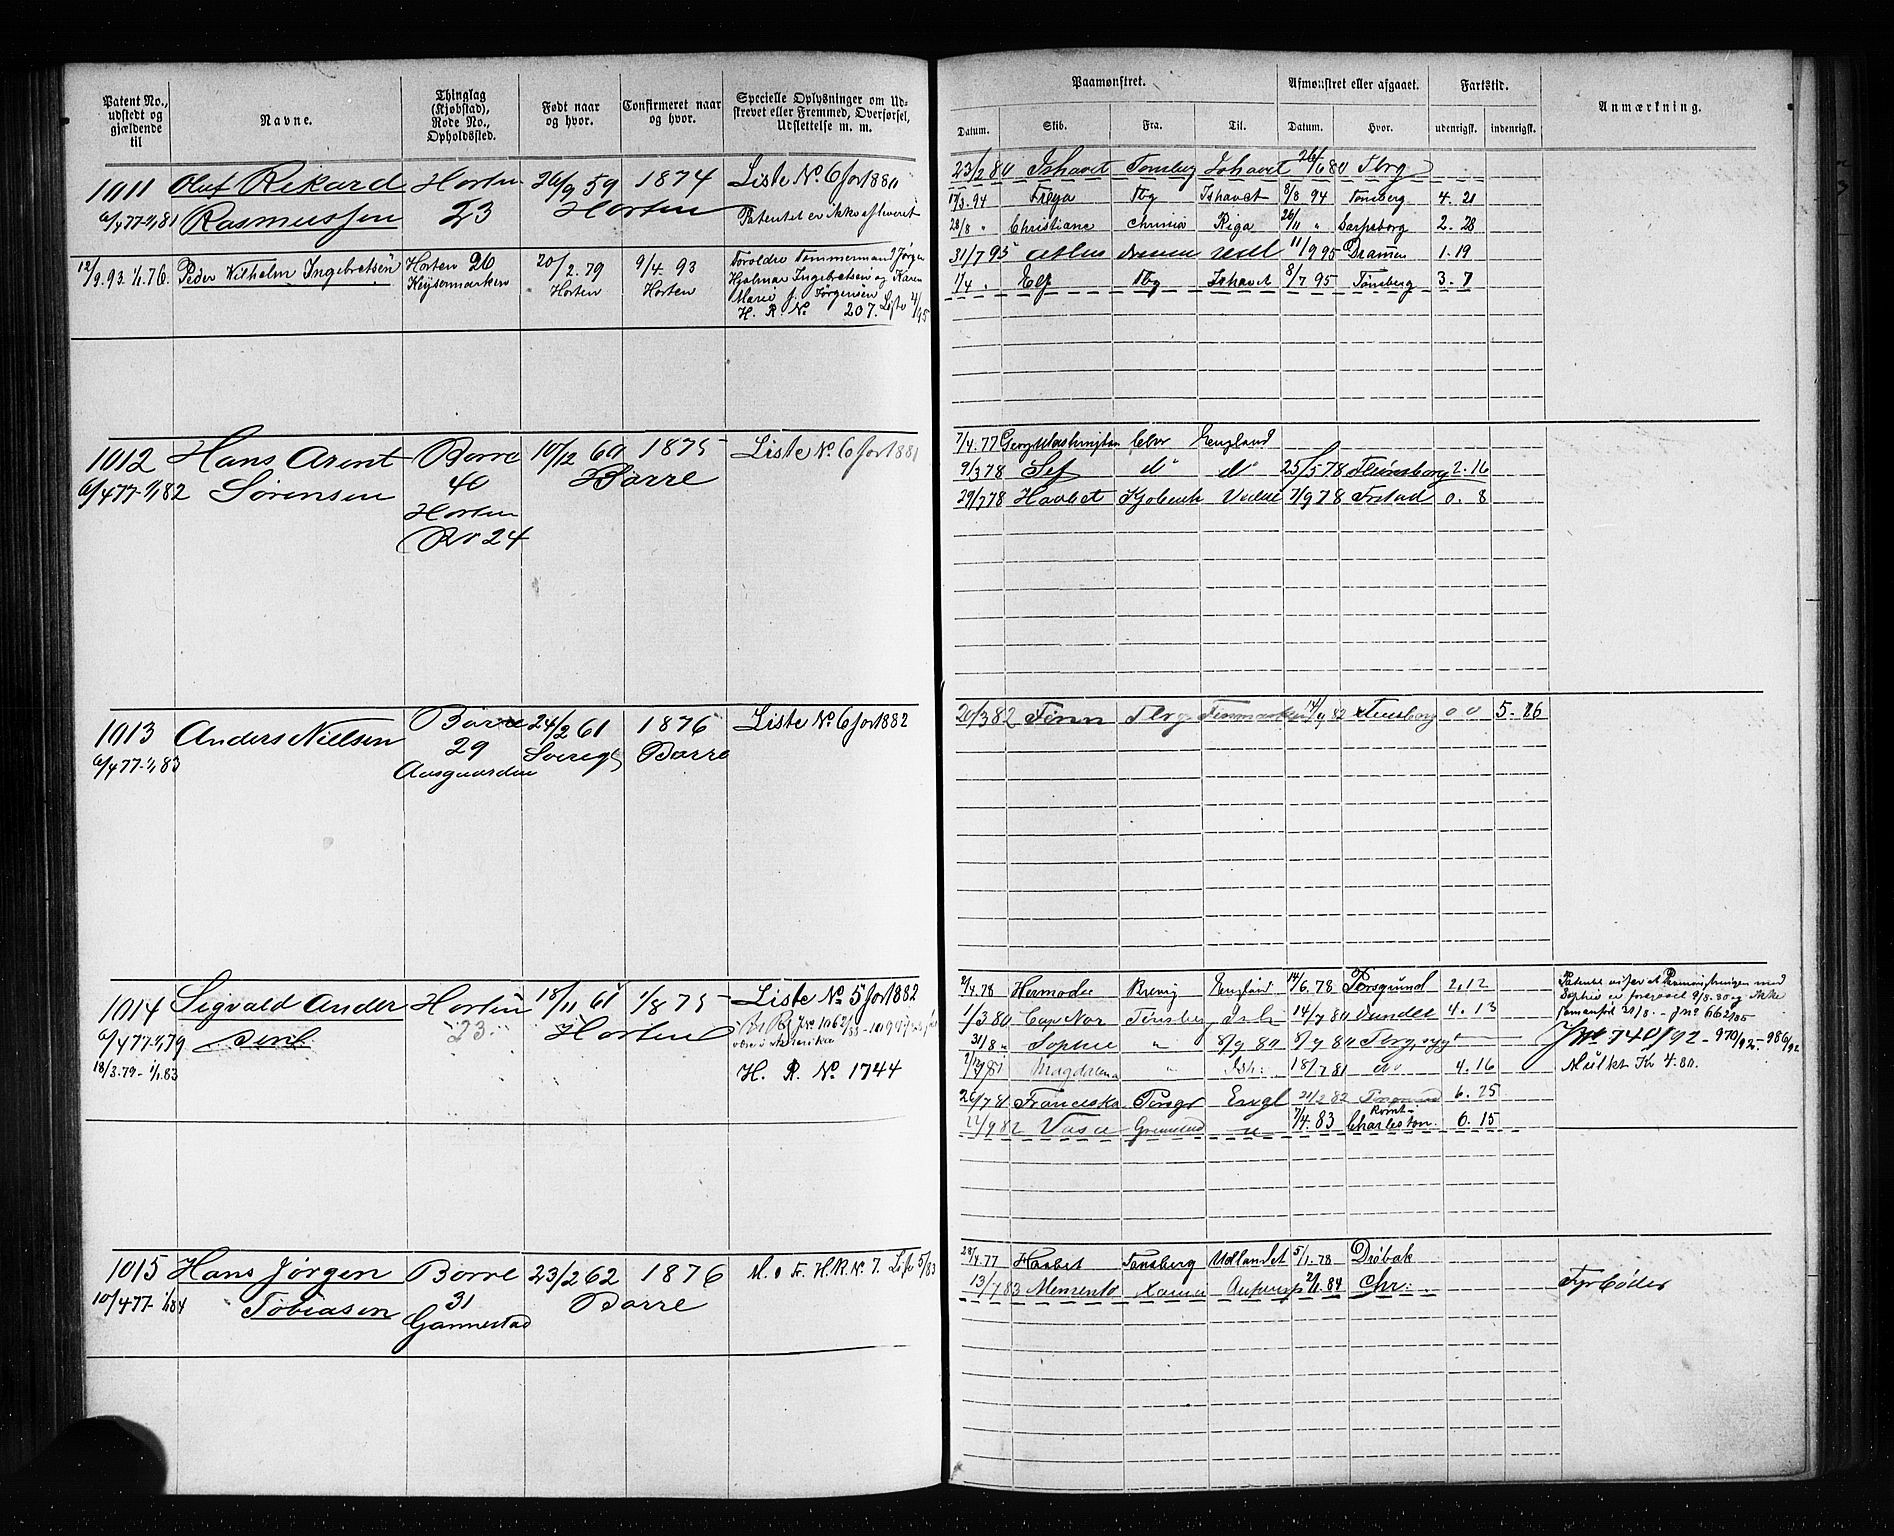 Patent No., udstedt og gjældende til
Navne.
Thinglag (Kjøbstad), Rode No., Opholdssted.
Født naar og hvor.
Confirmeret naar og hvor.
Specielle Oplysninger om Udskrevet eller Fremmed, Overførsel, Udslettelse m. m.
Paamønstret.
Afmønstret eller afgaaet.
Fartstid.
Anmærkning.
Datum. Skib. Fra. Til. Datum. Hvor. udenrigsk. indenrigsk.
1011 Oluf Rikard Horten 26/9 59 1874 Liste No. 6 for 1880
6/4 77-1/1 81 Rasmussen 23 Horten Patentet er ikke afleveret
23/2 80 Ishavet Tonsberg Ishavet 26/6 80 Tbrg
17/3. 94 Freya Tbg Ishavet 8/8 94 Tonsberg 4. 21
28/8 " Christiane Chrnia Riga 26/11 " Sarpsborg 2. 28
12/9.93. 1/1.76. Peder Vilhelm Ingebretsen Horten 20 20/2. 79 9/4. 93 Forældre Tømmermand Jørgen
Keysermarken Horten Horten Hjalmar Ingebretsen og Karen
Marie J. Jørgensen
H. R. No 207. Liste 4/95
31/7 95 11/9 95 Drammen 1. 19
1/4 . Elf Tbg Ishavet 8/7 95 Tønsberg 3. 7
1012 Hans Arent Borre 10/12 60 1875 Liste No. 6 for 1881
6/4 77-1/1 82 Sørensen 40 Borre
Horten
Ro 24
7/4. 77 Georg Washington England
9/3 78 Sef do do 25/5 78 2. 16
29/7 78 Haabet Kjøbenh 7/9 78 Frstad 0. 8
1013 Anders Nielsen Borre 24/2 61 1876 Liste No. 6 for 1882
6/4 77-1/1 83 29 Sverig Borre
Aasgaarden
20/3 82 Finn Tbrg Finmarken 14/9 82 0 0 5. 26
1014 Sigvald Ander Horten 18/11 61 1/8 75 Liste No 5 for 1882
6/4 77-1/1 79 sen 23 Horten
18/3. 79 - 1/1. 83 H. R. No. 1744
2/4. 78 Hermodee Brevig England 14/6. 78 Porsgrund 2. 12
1/3 80 Cap Nor Tønsberg Ish 14/7 80 4. 13
31/8 " Sophie " 8/9 80 8/9 80 Tbrg, syg
Magdalena " Ish: 18/7 81 do 4. 16
26/7 81 Franciska Engl 21/2 82 6. 25
22/9 82 Vasa Grimstad 7/4. 83 Charleston. 6. 15
Jno 740/92 - 970/92 - 986/92
Mulkt Kr 4. 80.
1015 Hans Jørgen Borre 23/2 62 1876 M. o F. H. R. No. 7. Liste 5/83
10/4 77- 1/1 84 Tobiasen 31 Borre
Gannestad
28/4. 77 Haabet Tonsberg Udlandet 5/1. 78 Drøbak
13/7 83 Memento 2/1. 84 Chr:
Fyrbøder